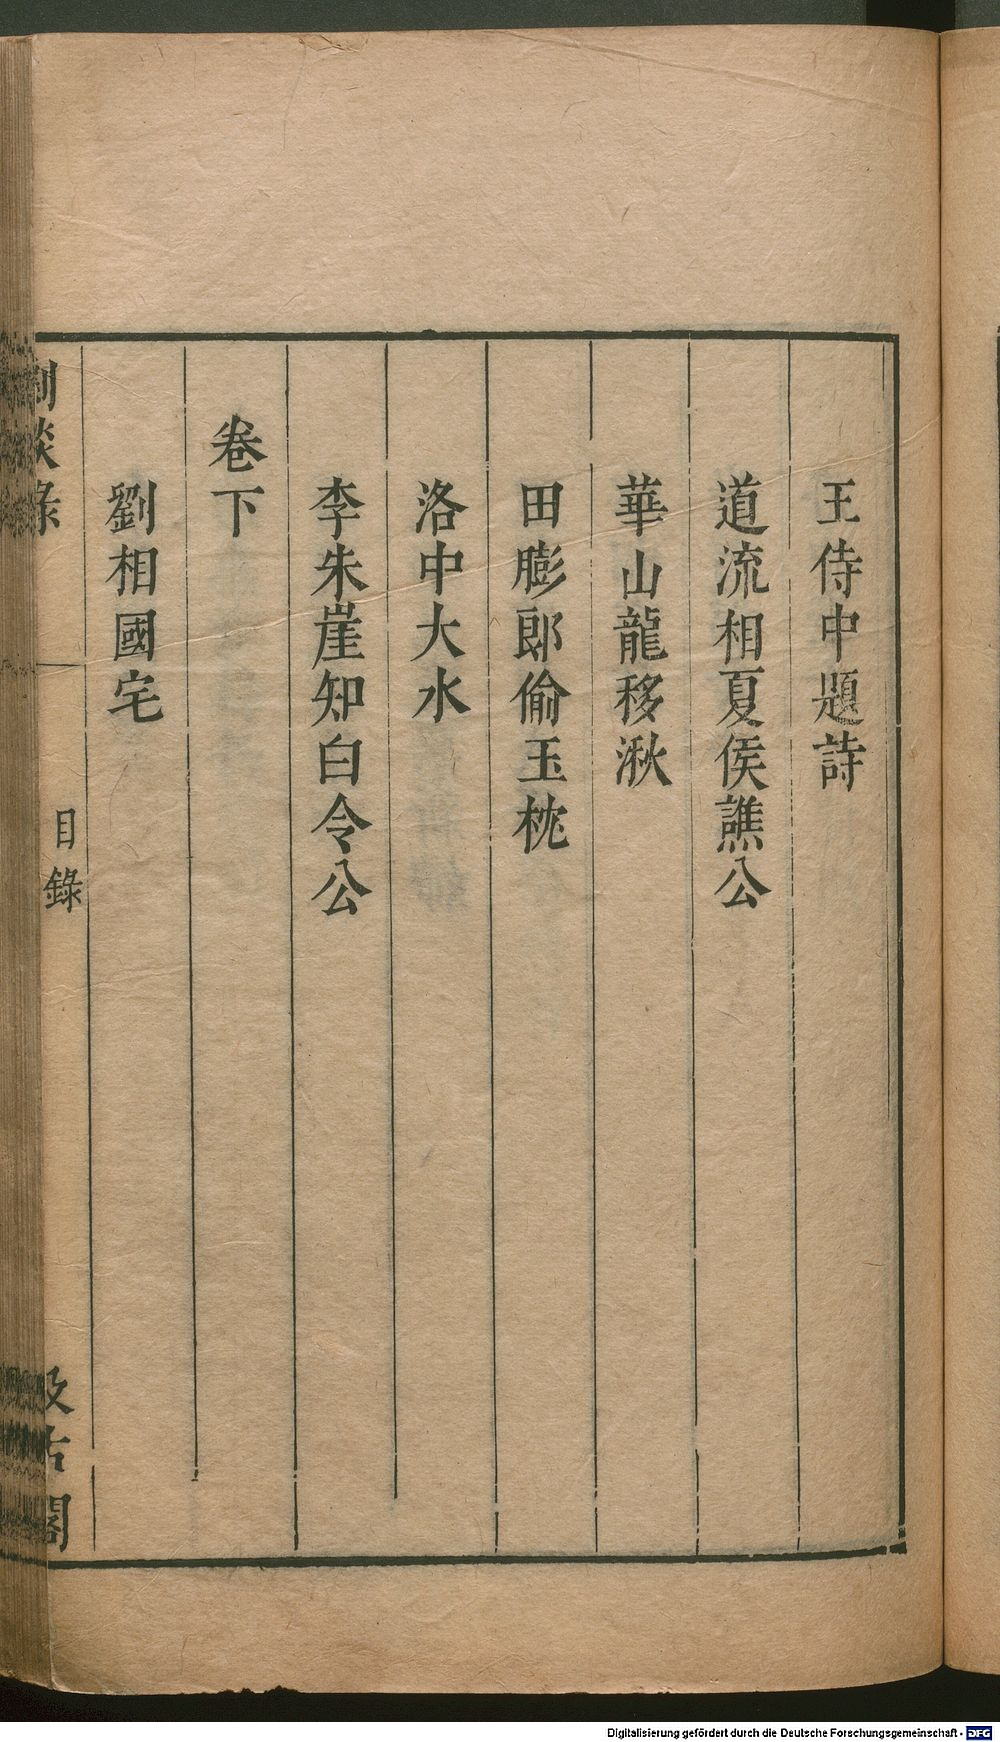 王侍中題詩
道流相夏侯譙公
華山龍移湫
田膨郎偷玉枕
洛中大水
李朱崖知白令公
卷下
劉相國宅
劇談錄
目錄
汲古閣
Digitalisierung gefördert durch die Deutsche Forschungsgemeinschaft - DFG